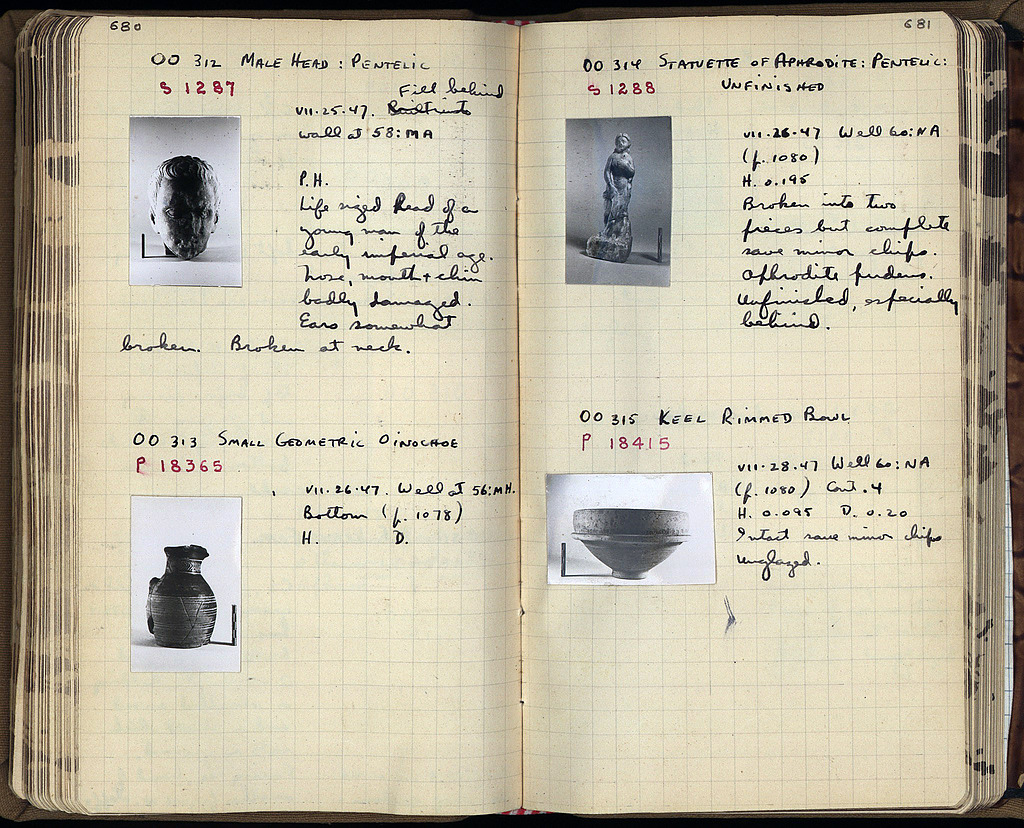 680
OO 312 MALE HEAD : PENTELIC
S 1287
Fill behind
VII.25.47.
wall at 58:MA
P.H.
Life sized head of a
young man of the
early imperial age.
Nose, mouth + chin
badly damaged.
Ears somewhat
broken. Broken at neck.
OO 313 SMALL GEOMETRIC OINOCHOE
P 18365
VII.26.47. Well at 56:MH.
Bottom (p. 1078)
H. D.
681
OO 314 STATUETTE OF APHRODITE: PENTELIC:
S 1288 UNFINISHED
VII.26.47 Well 60:NA
(p. 1080)
H. 0.195
Broken into two
pieces but complete
save minor chips.
Aphrodite pudens.
Unfinished, especially
behind.
OO 315 KEEL RIMMED BOWL
P 18415
VII.28.47 Well 60:NA
(p. 1080) Cont. 4
H. 0.095 D. 0.20
Intact save minor chips
Unglazed.